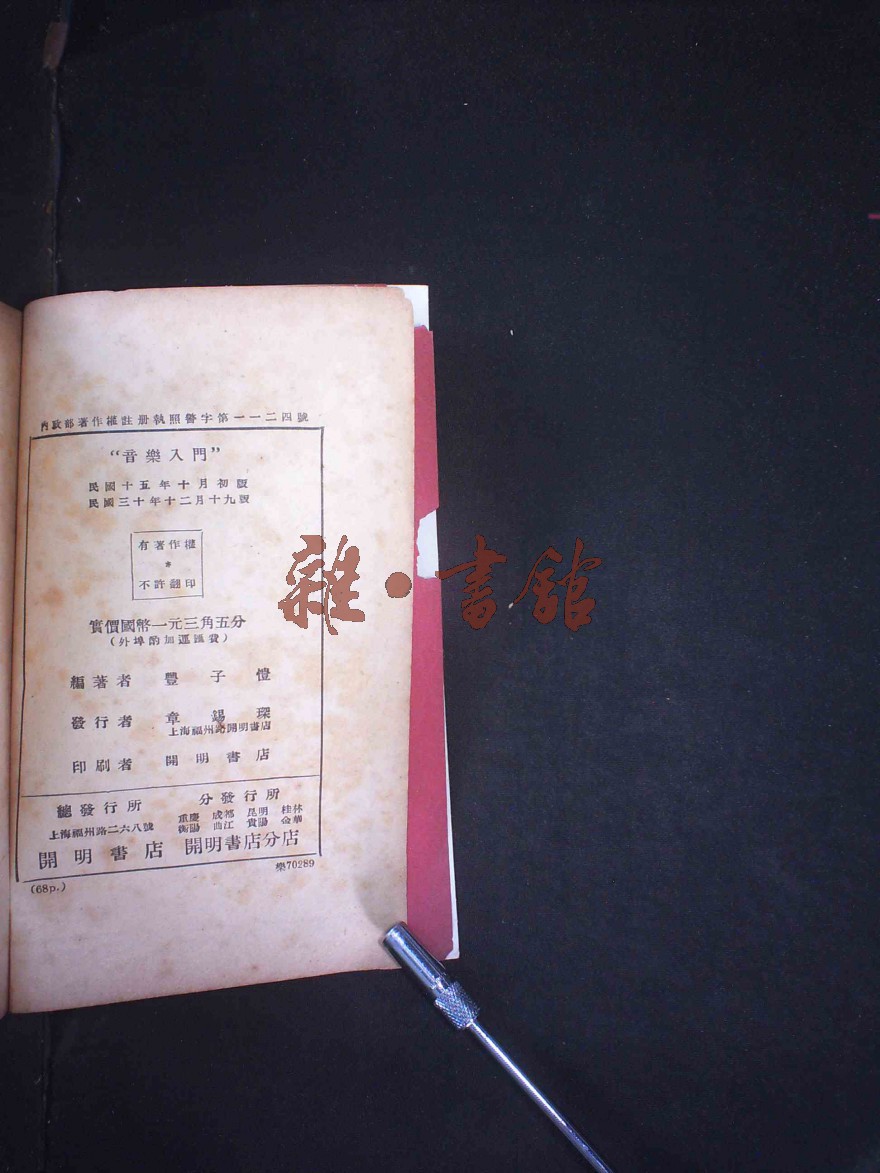 內政部著作權註册執照警字第一一二四號
“音樂入門”
民國十五年十月初版
民國三十年十二月十九版
有著作權
*
不許翻印
實價國幣一元三角五分
（外埠酌加運匯費）
編著者 豐子愷
發行者 章錫琛
上海福州路開明書店
印刷者 開明書店
總發行所 分發行所
重慶 成都 昆明 桂林
上海福州路二六八號 衡陽 曲江 貴陽 金華
開明書店 開明書店分店
樂70289
(68p.)
雜·書館